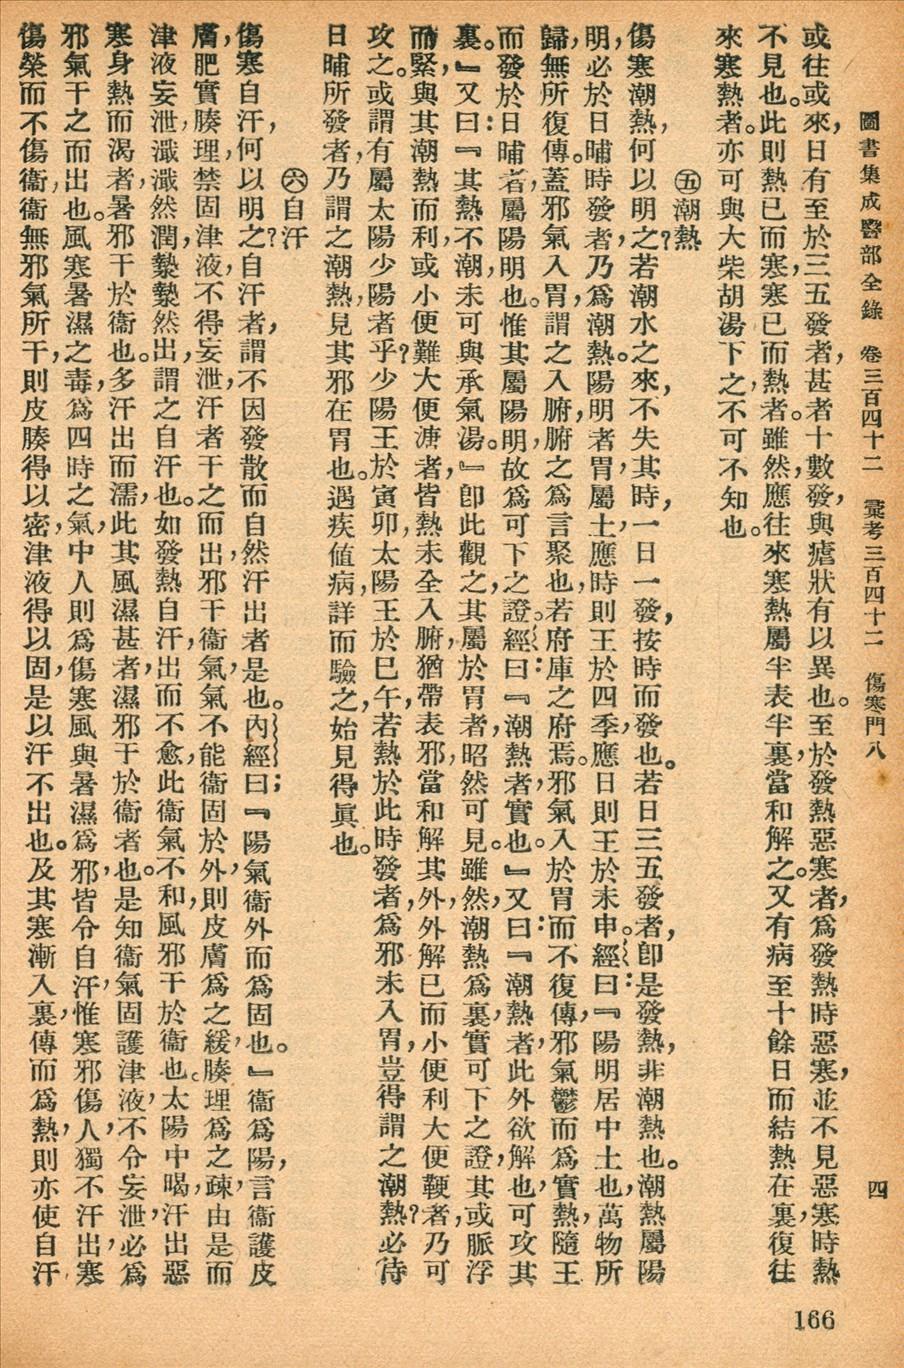 圖書集成醫部全錄　卷三百四十二　彙考三百四十二　傷寒門八　四
或往或來，日有至於三五發者，甚者十數發，與瘧狀有以異也。至於發熱惡寒者，為發熱時惡寒，並不見惡寒時熱
不見也。此則熱已而寒，寒已而熱者。雖然，應往來寒熱屬半表半裏，當和解之。又有病至十餘日而結熱在裏，復往
來寒熱者。亦可與大柴胡湯下之，不可不知也。
㊄潮熱
傷寒潮熱，何以明之？若潮水之來，不失其時，一日一發，按時而發也。若日三五發者，卽是發熱，非潮熱也。潮熱屬陽
明，必於日晡時發者，乃爲潮熱。陽明者胃，屬土，應時則王於四季，應日則王於未申。經曰：『陽明居中土也，萬物所
歸，無所復傳。蓋邪氣入胃，謂之入腑，腑之爲言聚也，若府庫之府焉。邪氣入於胃而不復傳，邪氣鬱而爲實熱，隨王
而發於日晡者，屬陽明也。惟其屬陽明，故爲可下之證。經曰：『潮熱者，實也。』又曰：『潮熱者，此外欲解也，可攻其
裏。』又曰：『其熱不潮，未可與承氣湯。』卽此觀之，其屬於胃者，昭然可見。雖然，潮熱爲裏實可下之證，其或脈浮
而緊，與其潮熱而利，或小便難大便溏者，皆熱未全入腑，猶帶表邪，當和解其外，外解已而小便利大便鞕者，乃可
攻之。或謂有屬太陽少陽者乎？少陽王於寅卯，太陽王於巳午，若熱於此時發者，爲邪未入胃，豈得謂之潮熱？必待
日晡所發者，乃謂之潮熱，見其邪在胃也。遇疾値病，詳而驗之，始見得眞也。
㊅自汗
傷寒自汗，何以明之？自汗者，謂不因發散而自然汗出者是也。內經曰：『陽氣衞外而爲固也。』衞爲陽，言衞護皮
膚，肥實腠理，禁固津液，不得妄泄，汗者干之而出，邪干衞氣，氣不能衞固於外，則皮膚爲之緩，腠理爲之疎，由是而
津液妄泄，濈濈然潤，漐漐然出，謂之自汗也。如發熱自汗，出而不愈，此衞氣不和，風邪干於衞也。太陽中暍，汗出惡
寒身熱而渴者，暑邪干於衞也。多汗出而濡，此其風濕甚者，濕邪干於衞者也。是知衞氣固護津液，不令妄泄，必爲
邪氣干之而出也。風寒暑濕之毒，爲四時之氣，中人則爲傷寒。風與暑濕爲邪，皆令自汗，惟寒邪傷人，獨不汗出，寒
傷榮而不傷衞，衞無邪氣所干，則皮腠得以密，津液得以固，是以汗不出也。及其寒漸入裏，傳而爲熱，則亦使自汗
166